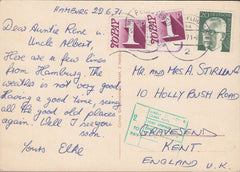 HAMBURG 28.6.71
Dear Auntie Rene &
Uncle Albert,
Here are a few lines
from Hamburg. The
weather is not very good.
Having a good time, seeing
all the good old places
again. Will see you
soon
Yours Elke
TO PAY
TO PAY
MR AND MRS A. STIRLING
10 HOLLY BUSH ROAD
GRAVESEND
KENT
ENGLAND U.K.